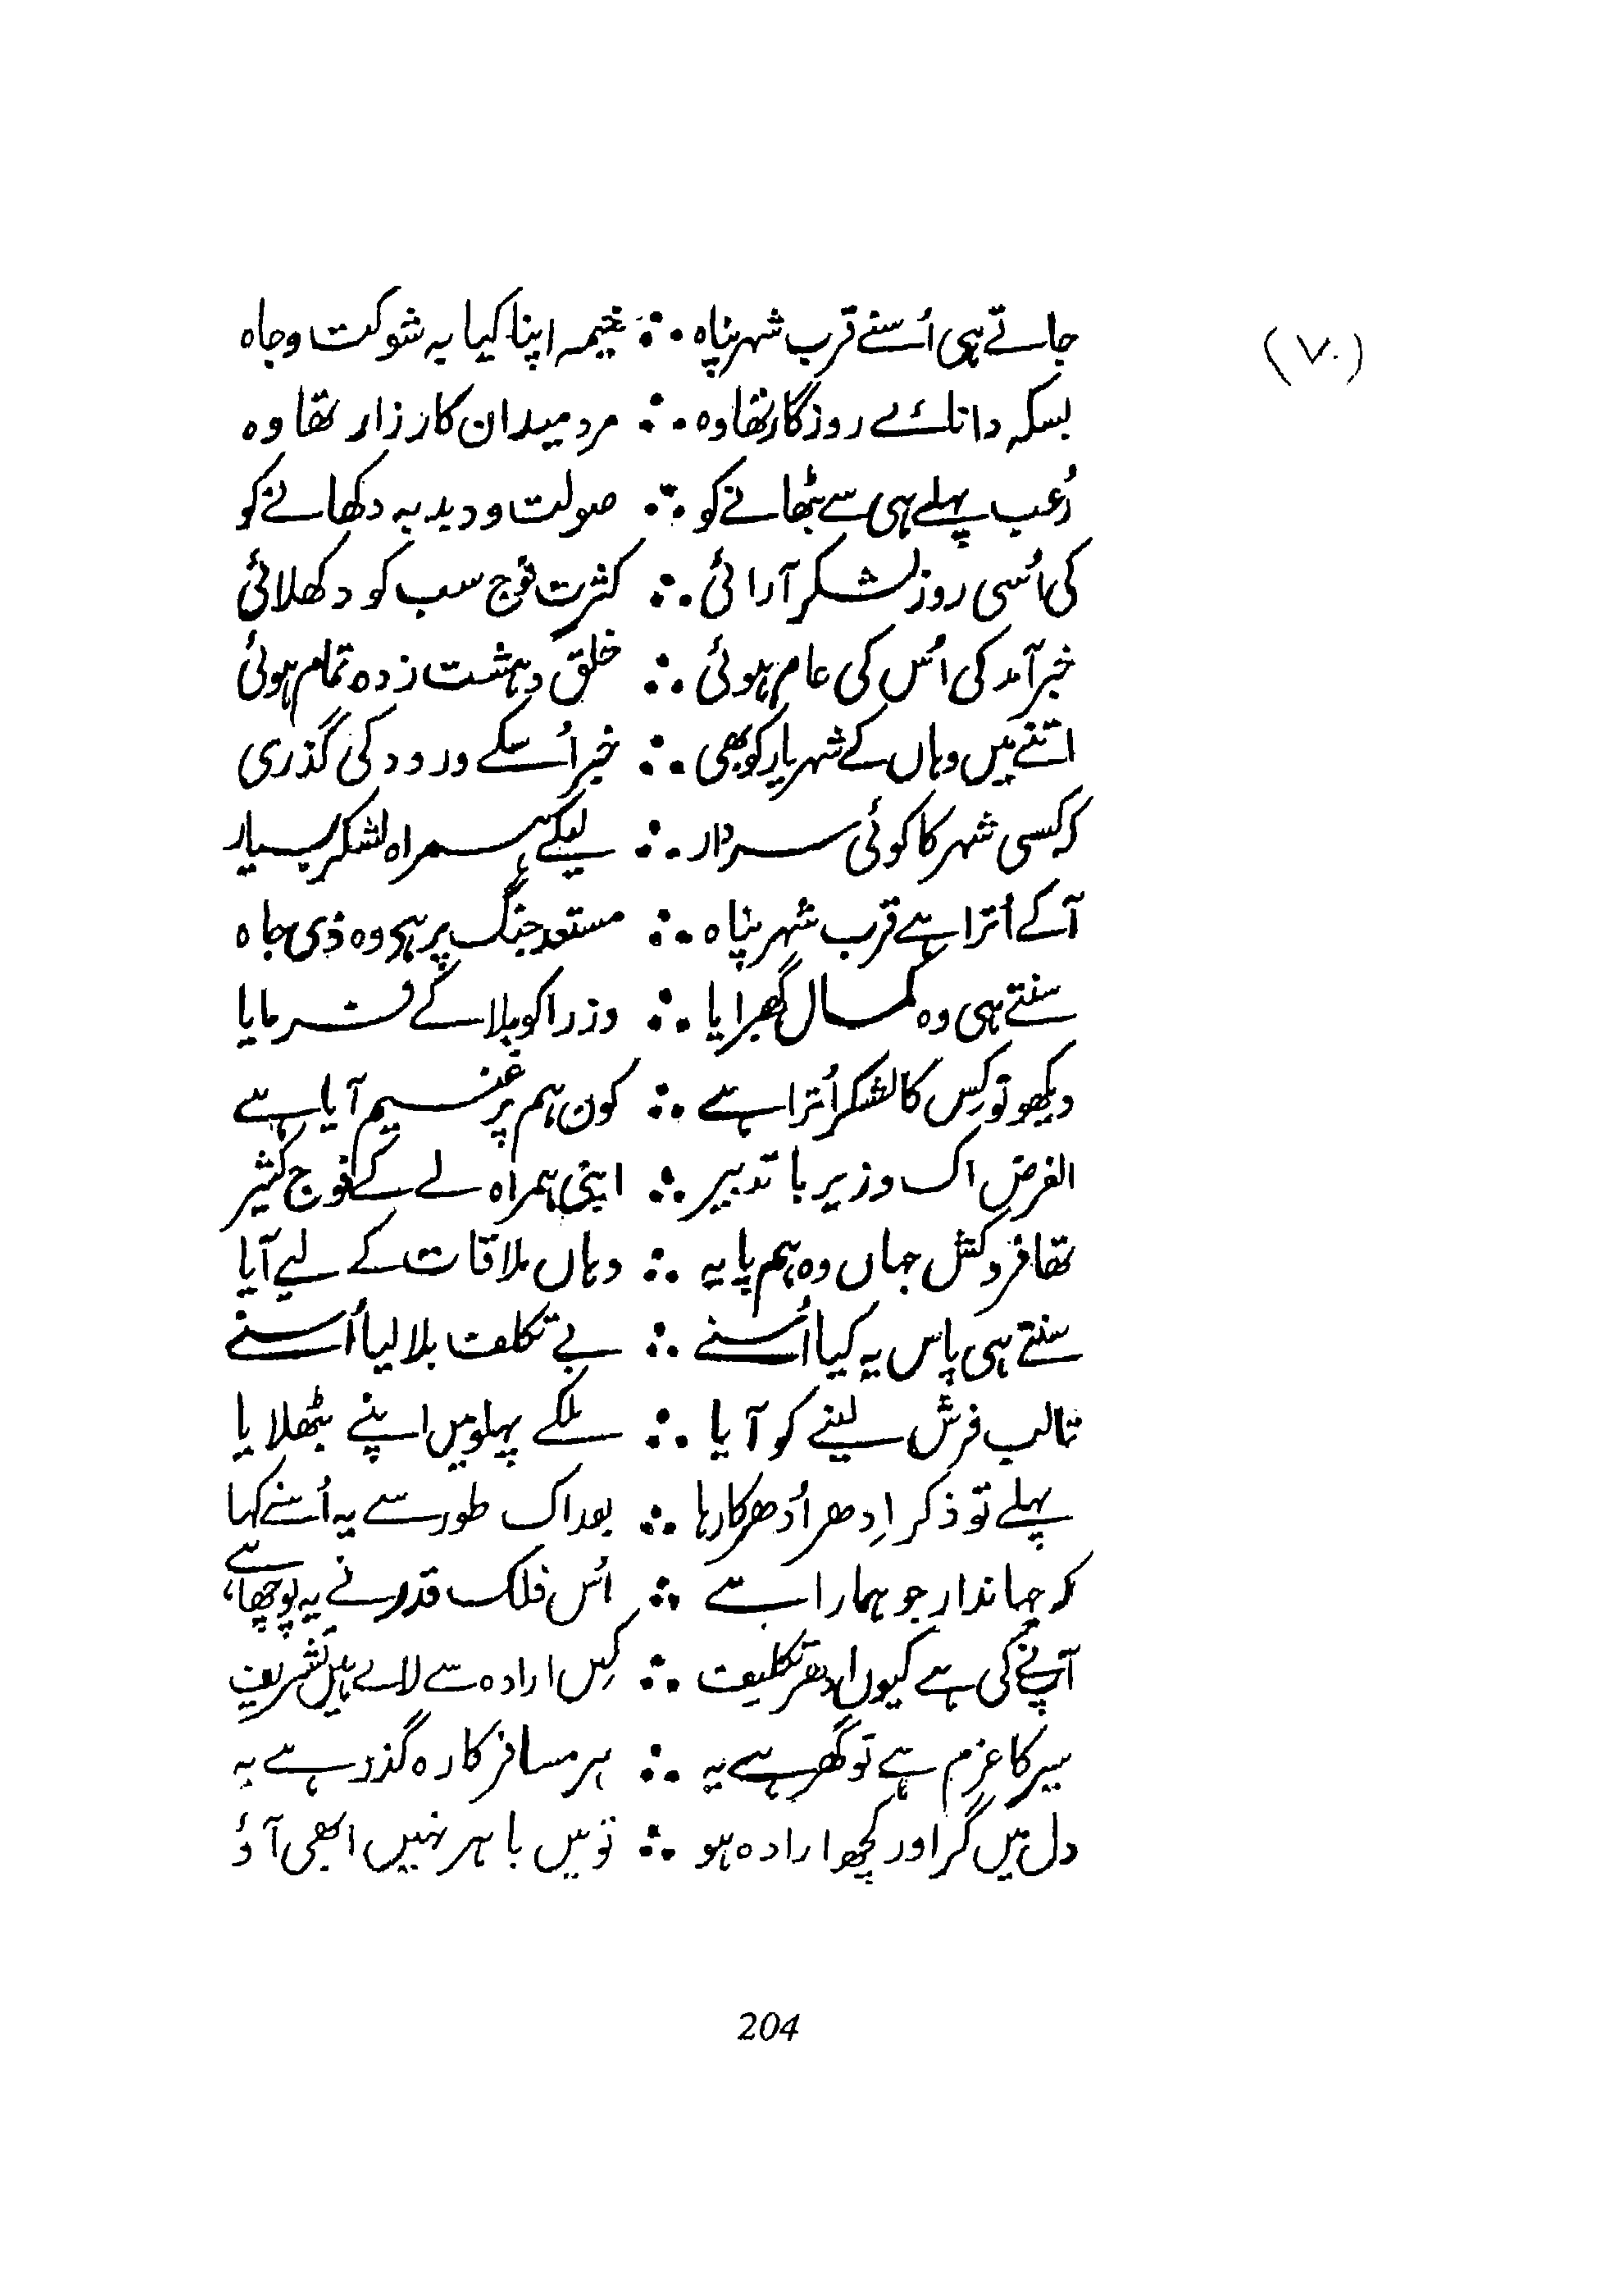 (۷۰)
جاتے ہی اُسنے قرب شہر پناہ ؞ خیمہ اپنا کیا بہ شوکت و جاہ
بسکہ دانائے روزگار تھا وہ ؞ مرد میدان کارزار تھا وہ
رُعب پہلے ہی سے بٹھانے کو ؞ صولت و دبدبہ دکھانے کو
کی اُسی روز لشکر آرائی ؞ کثرت فوج سب کو دکھلائی
خبر آمد کی اُس کی عام ہوئی ؞ خلق دہشت زدہ تمام ہوئی
اتنے میں وہاں کے شہریار کو بھی ؞ خبر اُسکے ورود کی گذری
کہ کسی شہر کا کوئی سردار ؞ لیکے ہمراہ لشکر بسیار
آکے اُترا ہے قرب شہر پناہ ؞ مستعد جنگ پر ہے وہ ذی جاہ
سنتے ہی وہ کمال گھبرایا ؞ وزرا کو بلا کے فرمایا
دیکھو تو کِس کا لشکر اُترا ہے ؞ کون ہم پر غنیم آیا ہے
الغرض اک وزیر با تدبیر ؞ اپنی ہمراہ لے کے فوج کثیر
تھا فروکش جہاں وہ ہم پایہ ؞ وہاں ملاقات کے لیے آیا
سنتے ہی پاس یہ کیا اُسنے ؞ بے تکلف بلا لیا اُسنے
تالب فرش لینے کو آیا ؞ ملکے پہلو میں اپنے بٹھلایا
پہلے تو ذکر اِدھر اُدھر کا رہا ؞ بعد اک طور سے یہ اُسنے کہا
کہ جہاندار جو ہمارا ہے ؞ اُس فلک قدر نے یہ پوچھا ہے
آپنے کی ہے کیوں اِدھر تکلیف ؞ کِس ارادہ سے لاے ہیں تشریف
سیر کا عزم ہے تو گھر ہے یہ ؞ ہر مسافر کا رہ گذر ہے یہ
دل میں گر اور کچھ ارادہ ہو ؞ تو میں باہر نہیں ابھی آؤ
204